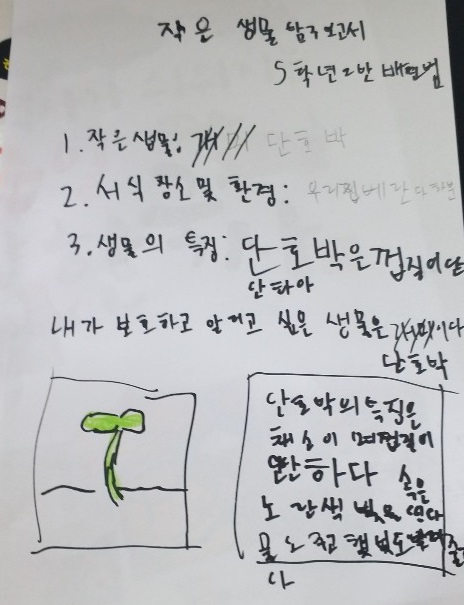 작은 생물 탐구보고서
5학년 2반 배
1. 작은생물: 단호박
2. 서식 장소 및 환경: 우리집베란다화분
3. 생물의 특징: 단호박은껍질이단
단하아
내가 보호하고 알리고 싶은 생물은 이다
단호박
단호박의특징은
채소이며껍질이
단단하다 속은
노란색 빛을 띤다
물 노 주고 햇빛도
다